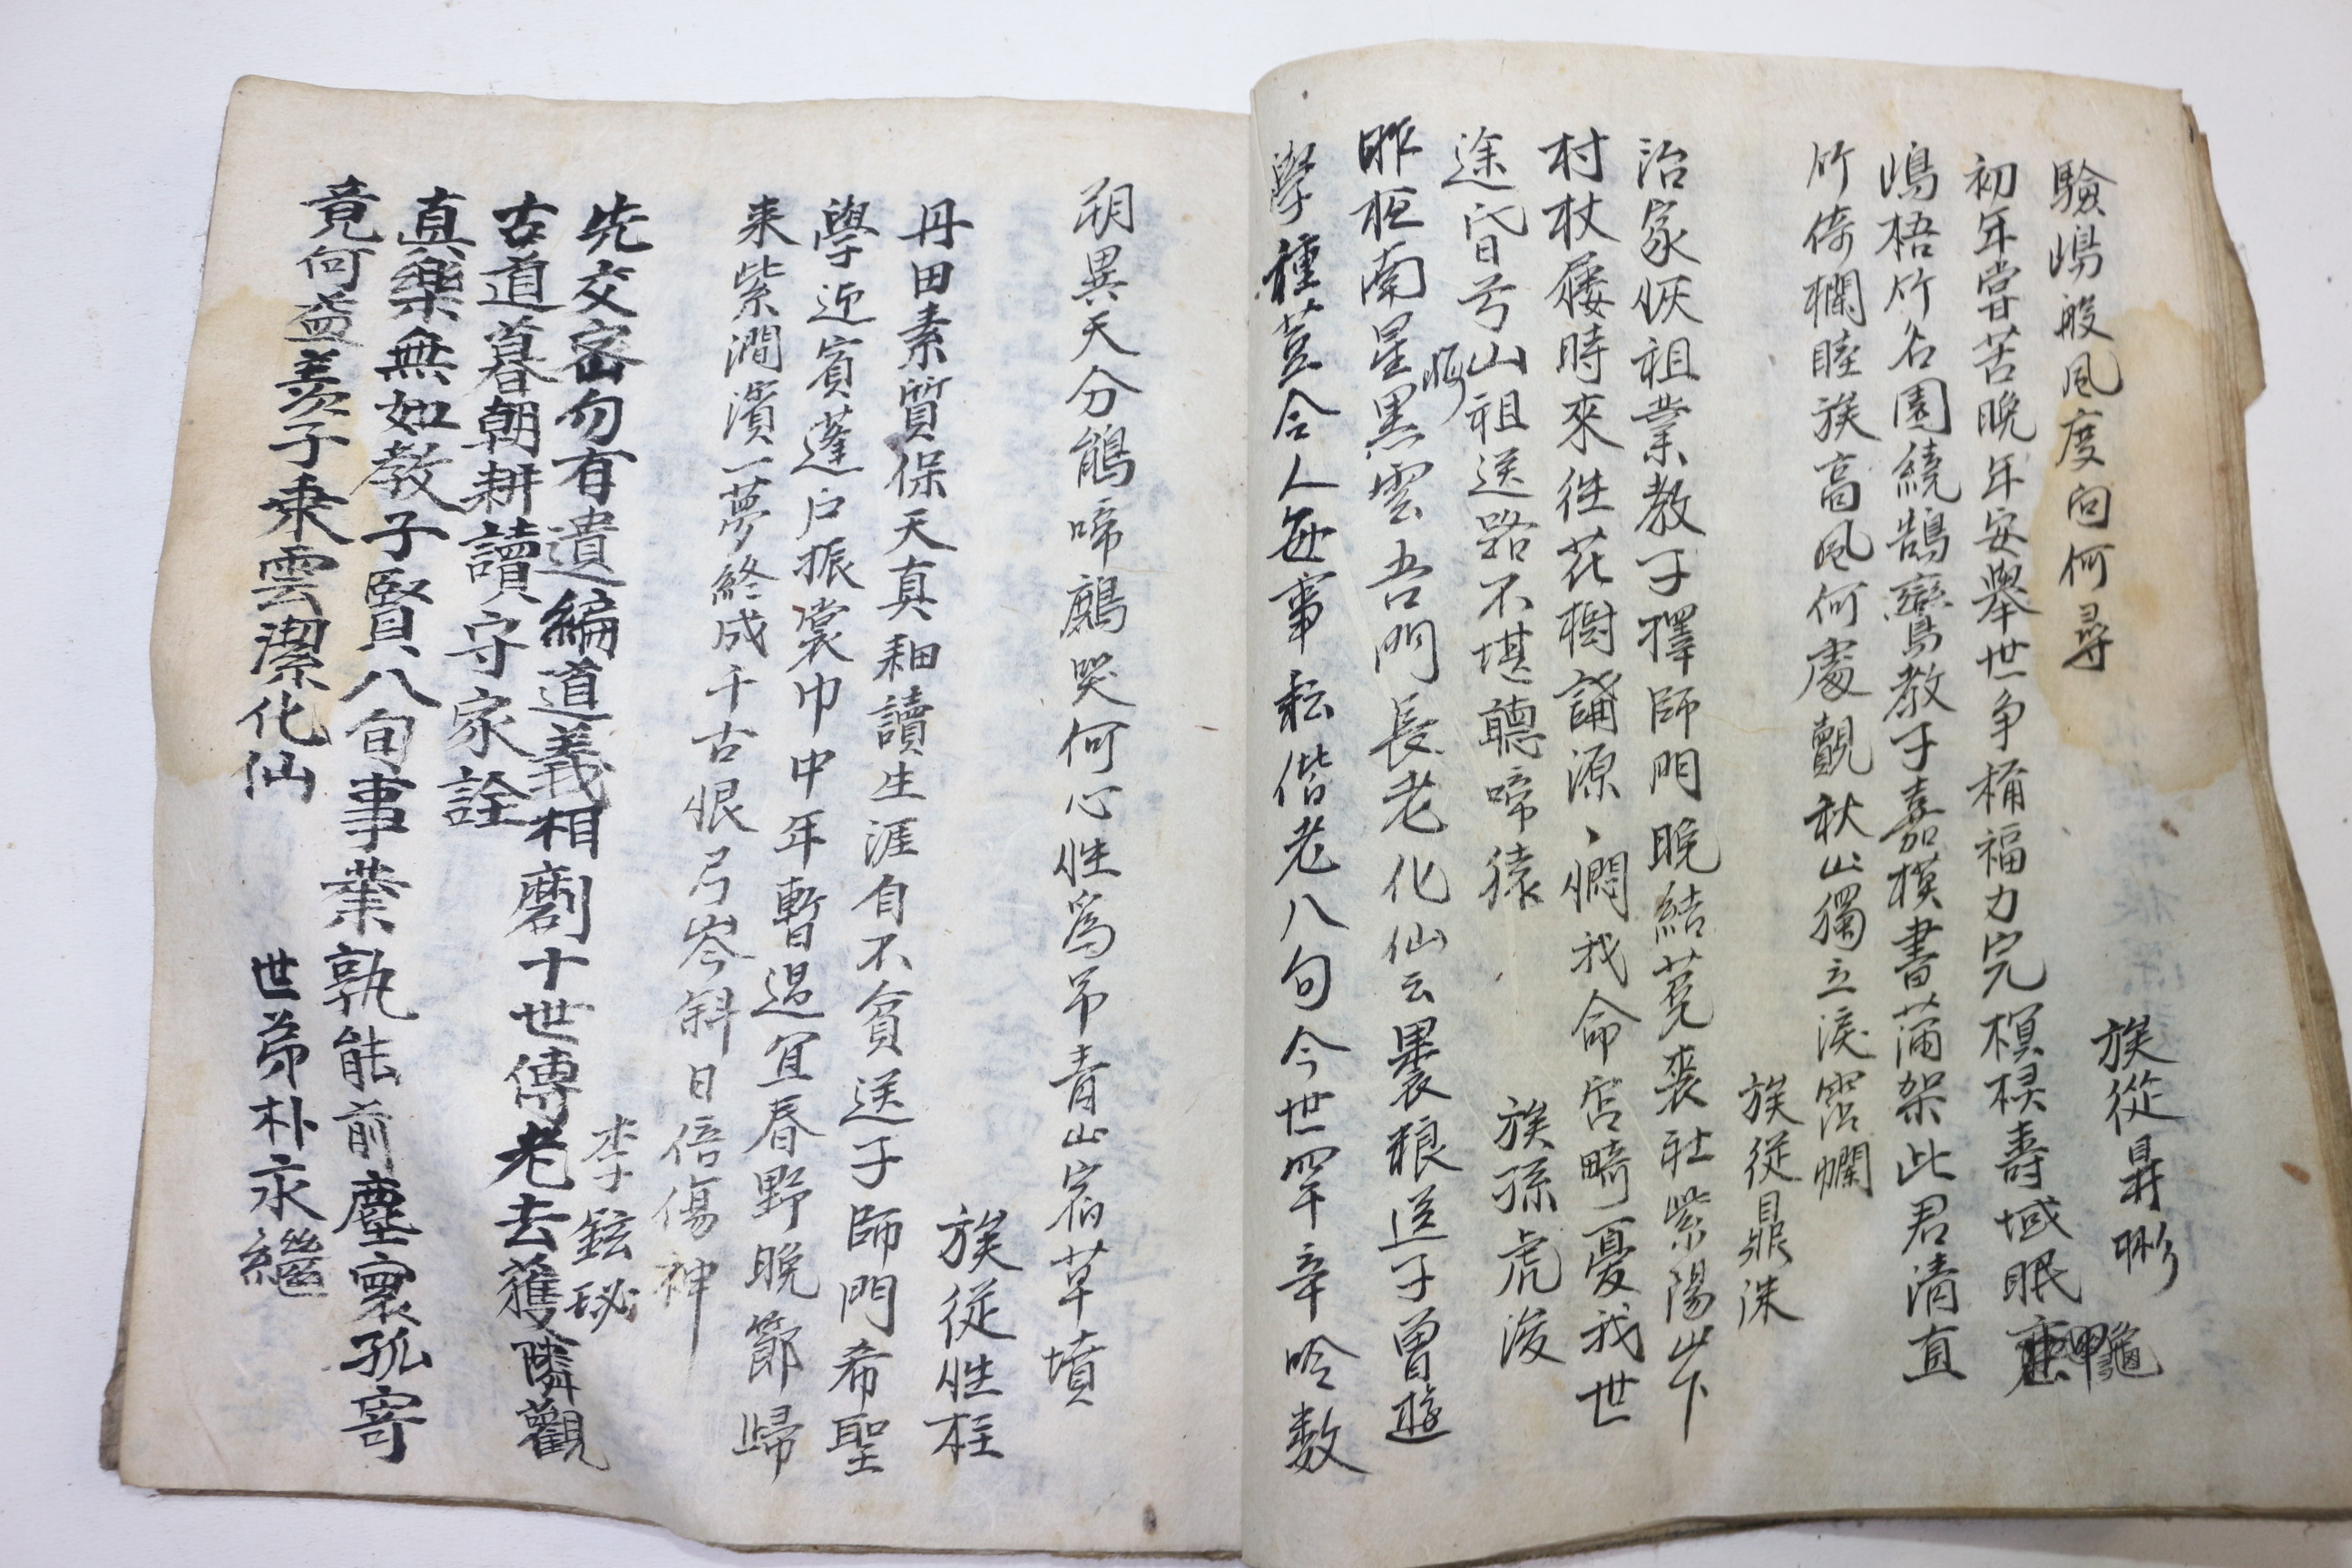 驗嶋般風度向何尋
族從昇
初年嘗苦晩年安擧世争稱福力完棋椂壽域眠龜甲
嶋梧竹名園繞鵠鸞教子嘉模書蒲架此君淸直
竹倚欄睦族高風何處覿秋山獨立淚霑爛
族從鼎洙
治家恢祖業教子擇師門晩結菟裘社紫陽山下
村杖屨時來徃花樹誦源、憫我命宮畸憂我世
途昏兮山祖送路不堪聽啼猿
族孫虎浚
昨柩南星黑雲吾門長老化仙云褁粮送子曾遊
學種荳令人每事耘偕老八旬今世罕辛吟数
朔異天分鵑啼鷓哭何心性爲吊青山宿草墳
族從性柱
丹田素質保天真耕讀生涯自不貧送子師門希聖
學迎賓蓬户振裳巾中年暫過宜春野晩節歸
来紫澗濱一夢終成千古恨弓岑斜日倍傷神
李鉉玅
先交密勿有遺編道義相劘十世傳老去獲隣觀
古道暮朝耕讀守家詮
真樂無如教子賢八旬事業孰能前塵寰孤寄
竟何益羨子乗雲潔化仙
世弟朴永繼